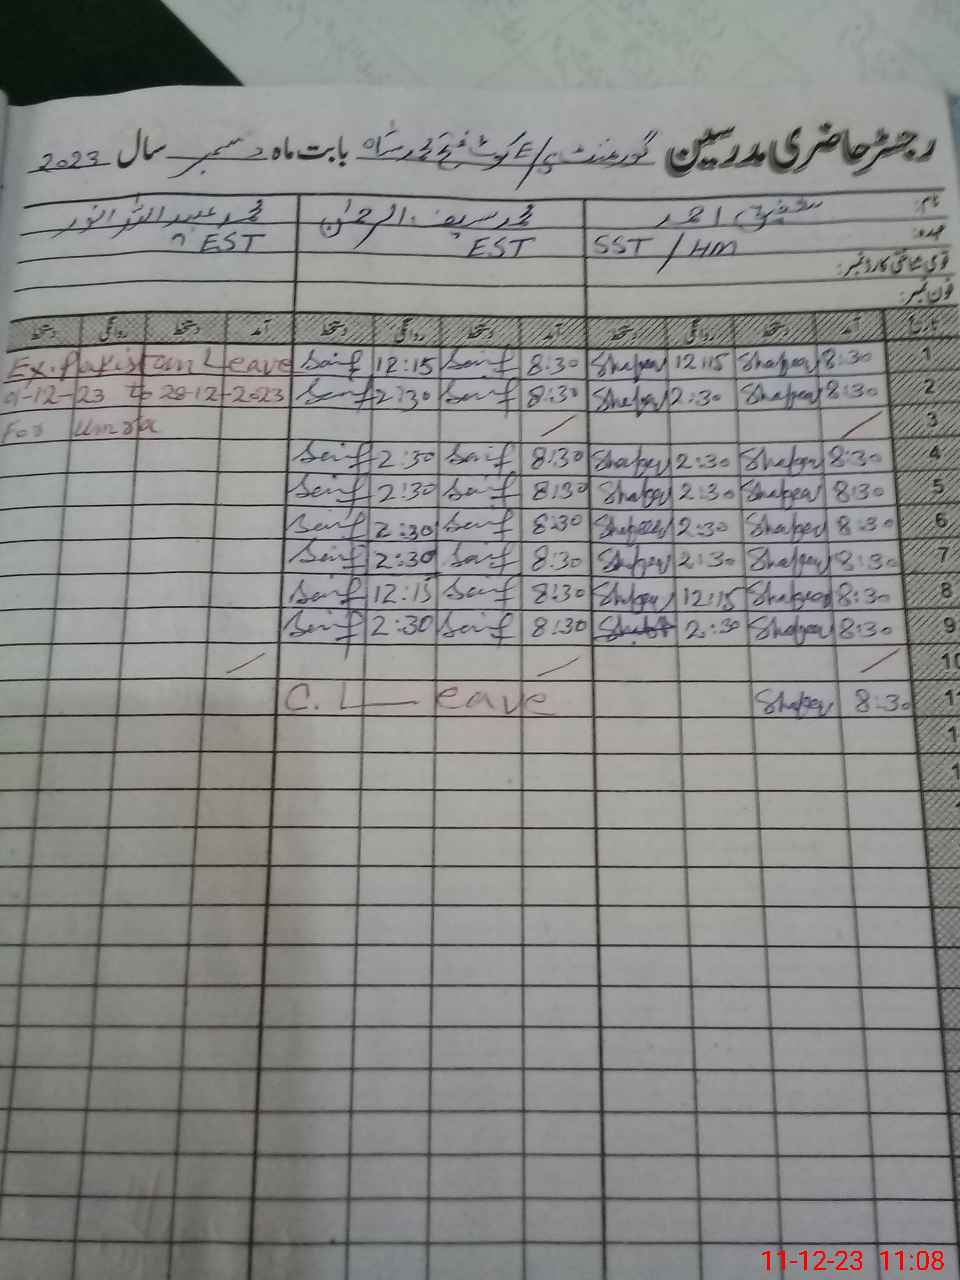 رجسٹر حاضری مدرسین گورنمنٹ E/S کوٹ فتح محمد شاہ بابت ماہ دسمبر سال 2023
نام: شفیق احمد محمد سیف الرحمٰن محمد عبداللہ انور
عہدہ: SST / HM EST EST
قومی شناختی کارڈ نمبر:
فون نمبر:
تاریخ آمد دستخط روانگی دستخط آمد دستخط روانگی دستخط آمد دستخط روانگی دستخط
Ex. Pakistan Leave Saif 12:15 Saif 8:30 Shafeeq 12:15 Shafeeq 8:30 1
01-12-23 to 28-12-2023 Saif 2:30 Saif 8:30 Shafeeq 2:30 Shafeeq 8:30 2
For Umra 3
Saif 2:30 Saif 8:30 Shafeeq 2:30 Shafeeq 8:30 4
Saif 2:30 Saif 8:30 Shafeeq 2:30 Shafeeq 8:30 5
Saif 2:30 Saif 8:30 Shafeeq 2:30 Shafeeq 8:30 6
Saif 2:30 Saif 8:30 Shafeeq 2:30 Shafeeq 8:30 7
Saif 12:15 Saif 8:30 Shafeeq 12:15 Shafeeq 8:30 8
Saif 2:30 Saif 8:30 2:30 Shafeeq 8:30 9
10
C. Leave Shafeeq 8:30
11-12-23 11:08